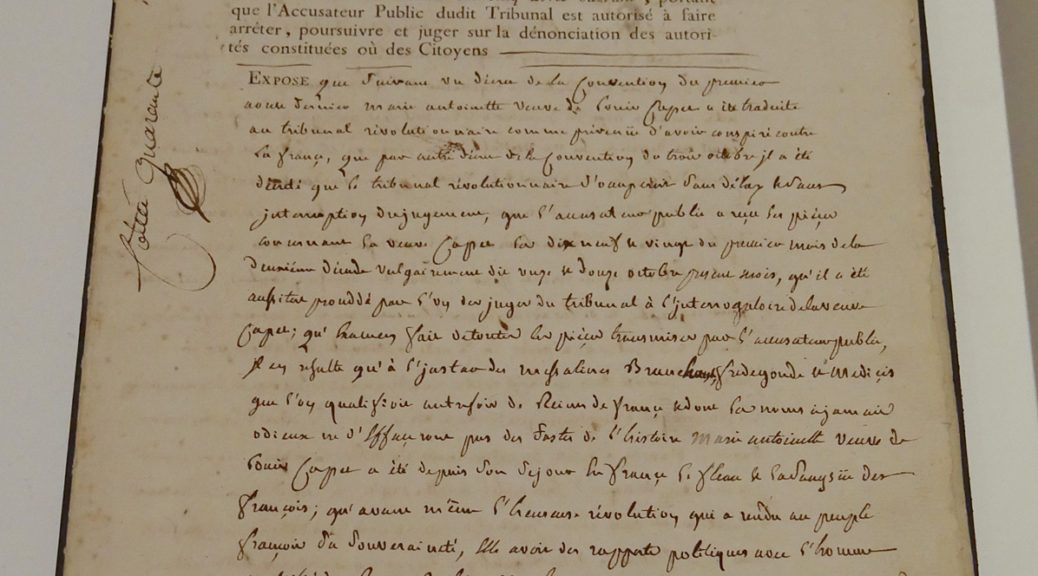 que l'Accusateur Public dudit Tribunal est autorisé à faire
arrêter, poursuivre et juger sur la dénonciation des autori-
tés constituées où des Citoyens
Cotté quarante
EXPOSE que suivant un décret de la Convention du premier
aout dernier marie antoinette veuve de Louis Capet a été traduite
au tribunal révolutionnaire comme prévenüe d'avoir conspiré contre
la france, que par autre décret de la Convention du trois octobre il a été
décrété que le tribunal révolutionnaire s'occuperoit sans délay et sans
interruption du jugement, que l'accusateur public a reçu les pieces
concernant la veuve Capet les dix neuf et vingt du premier mois de la
deuxieme décade vulgairement dit onze et douze octobre present mois, qu'il a été
aussitot procédé par l'un des juges du tribunal à l'interrogatoire de la veuve
Capet; qu'Examen fait de toutes les pieces transmises par l'accusateur public,
il en résulte qu'à l'instar des messalines Brunehaut, fredegonde et Medicis
que l'on qualifioit autrefois de Reines de france et dont les noms à jamais
odieux ne s'effaceront pas des fastes de l'histoire marie antoinette veuve de
Louis Capet a été depuis son sejour en france le fleau et la sangsüe des
françois; qu'avant même l'heureuse révolution qui a rendu au peuple
françois sa souveraineté, Elle avoit des rapports politiques avec l'homme